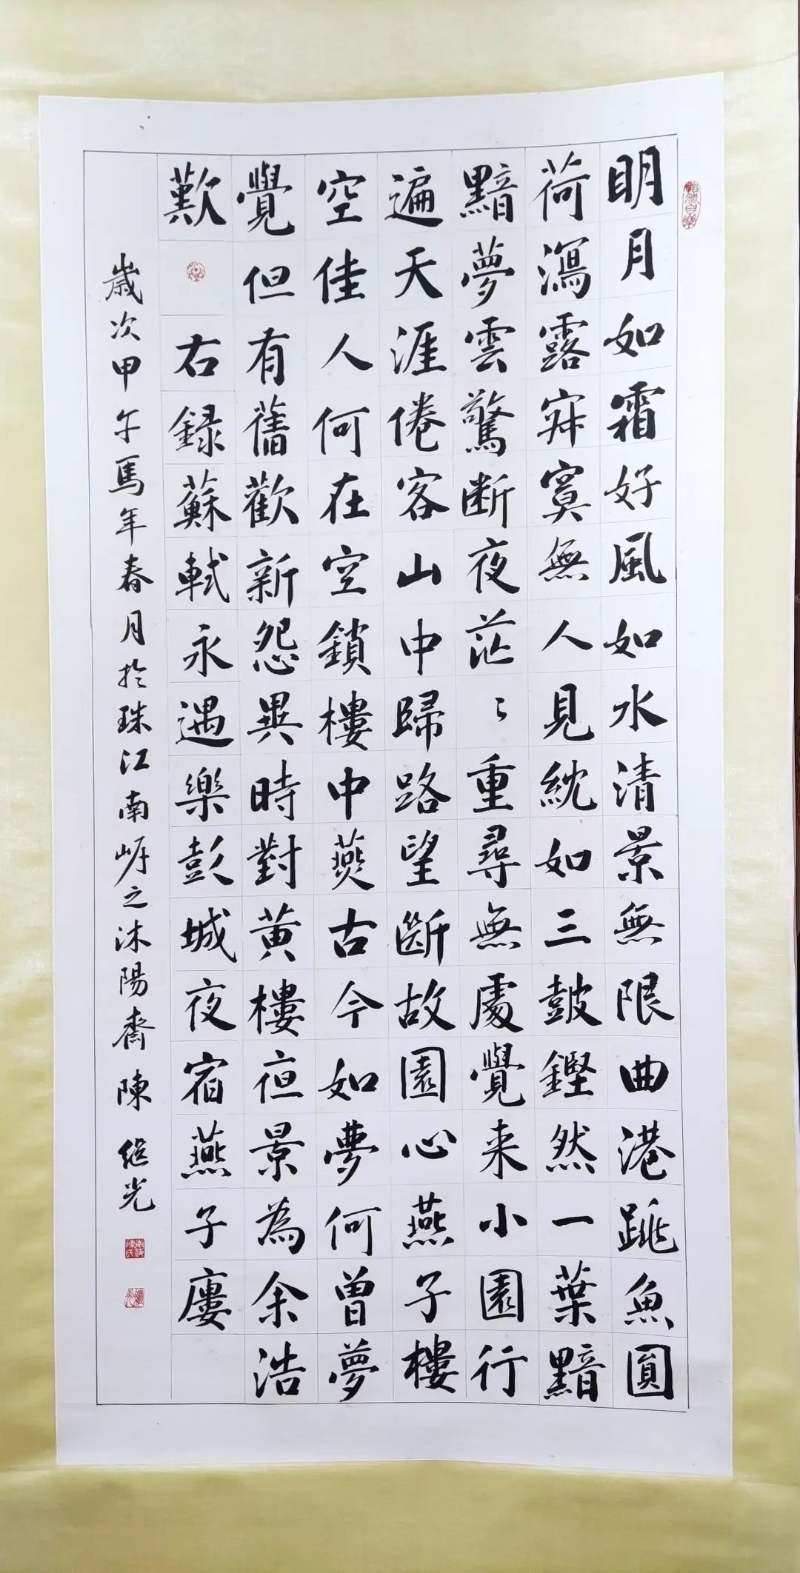 明月如霜好風如水清景無限曲港跳魚圓
荷瀉露寂寞無人見紞如三鼓鏗然一葉黯
黯夢雲驚断夜茫〻重尋無處覺来小園行
遍天涯倦客山中歸路望斷故園心燕子樓
空佳人何在空鎖樓中燕古今如夢何曾夢
覺但有舊歡新怨異時對黄樓夜景為余浩
歎
右録蘇軾永遇樂彭城夜宿燕子廔
歲次甲午馬年春月於珠江南岸之沐陽齋陳繼光